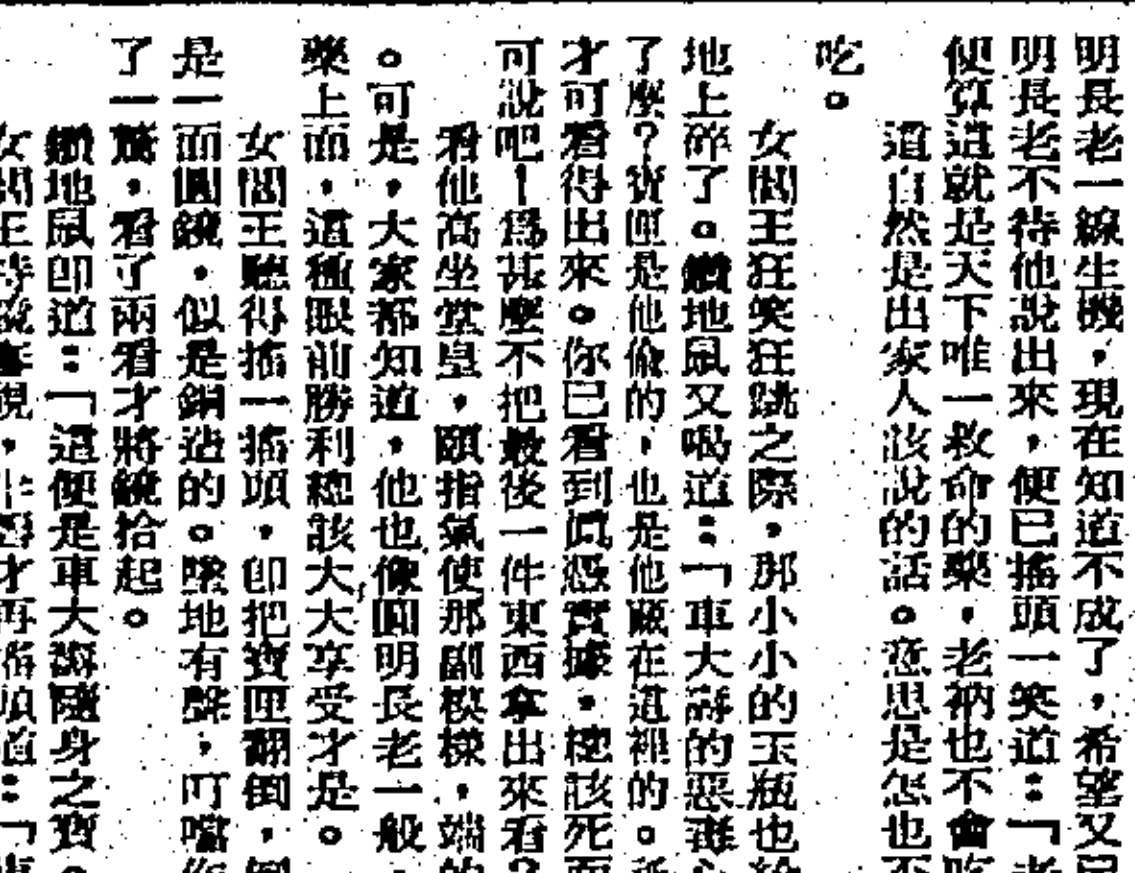 明長老一線生機，現在知道不成了，希望又
明長老不待他說出來，便已搖頭一笑道：「老
便算這就是天下唯一救命的藥，老衲也不會吃
道自然是出家人該說的話。意思是怎也不
吃。
女閻王狂笑狂跳之際，那小小的玉瓶也給
地上碎了。鑽地鼠又喝道：「車大壽的惡毒心
了麼？寶匣是他偷的，也是他藏在這裡的。
才可看得出來。你已看到真憑實據，總該死而
可說吧！爲甚麼不把最後一件東西拿出來看？
看他高坐堂皇，頤指氣使那副模樣，端的
。可是，大家都知道，他也像圓明長老一般，
藥上面，這種眼前勝利總該大大享受才是。
女閻王聽得搖一搖頭，即把寶匣翻倒，倒
是一面圓鏡，似是銅造的。墮地有聲，叮噹作
了一驚，看了兩看才將鏡拾起。
鑽地鼠即道：「這便是車大壽隨身之寶。
女閻王 才再搖頭道：「